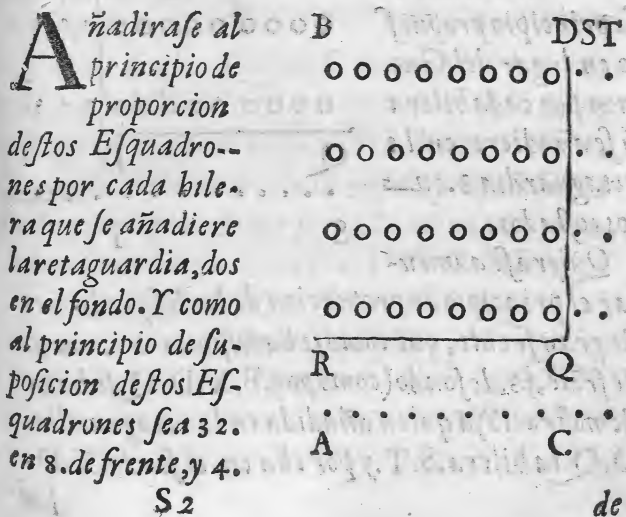 Añadiraſe al
principio de
proporcion
deſtos Eſquadro--
nes por cada hile-
ra que ſe añadiere
la retaguardia, dos
en el fondo. Y como
al principio de ſu-
poſicion deſtos Eſ-
quadrones ſea 32.
en 8. de frente, y 4.
S 2
de
B DST
R Q
A C